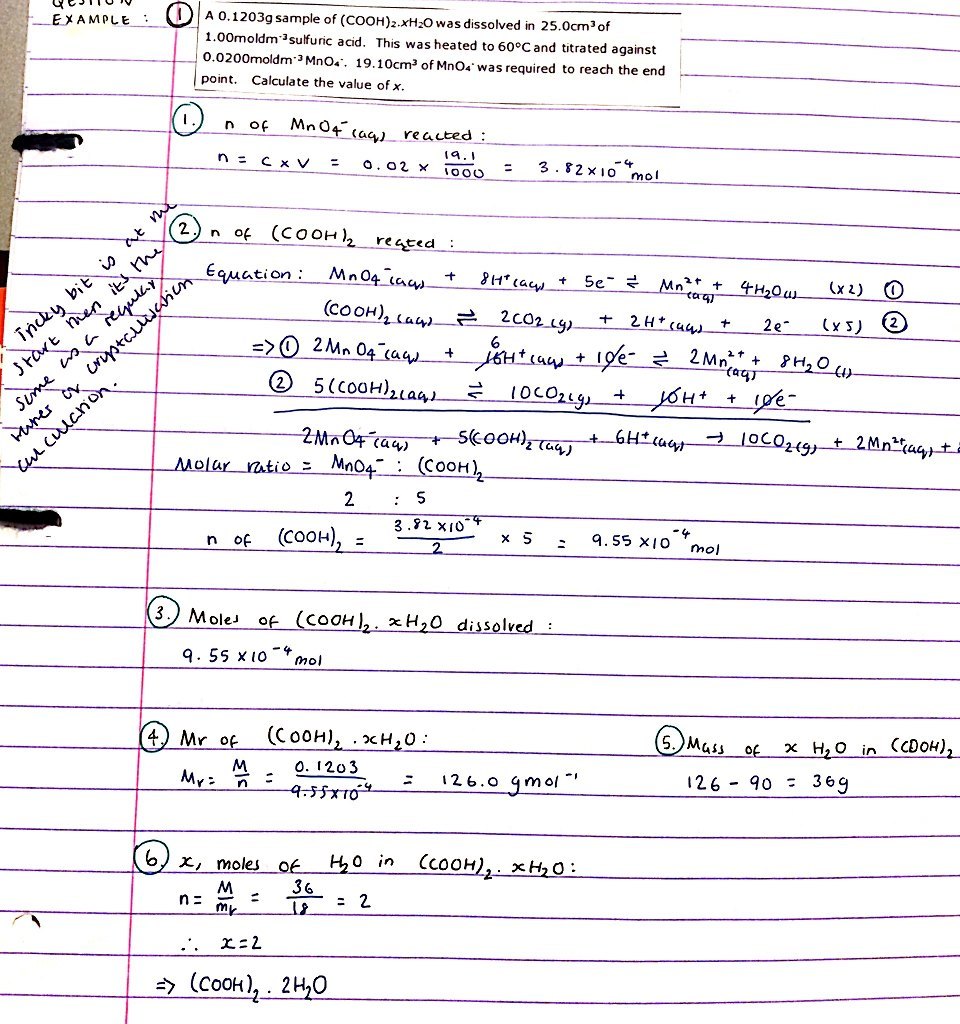 QESTION
EXAMPLE : ① A 0.1203g sample of (COOH)₂.xH₂O was dissolved in 25.0cm³ of
1.00moldm⁻³ sulfuric acid. This was heated to 60°C and titrated against
0.0200moldm⁻³ MnO₄⁻. 19.10cm³ of MnO₄⁻ was required to reach the end
point. Calculate the value of x.
1. n of MnO₄⁻(aq) reacted :
n = c x v = 0.02 x 19.1/1000 = 3.82 x 10⁻⁴ mol
Tricky bit is at the
start then it's the
same as a regular
crystallisation
calculation.
2. n of (COOH)₂ reacted :
Equation : MnO₄⁻(aq) + 8H⁺(aq) + 5e⁻ ⇌ Mn²⁺(aq) + 4H₂O(l) (x2) ①
(COOH)₂(aq) ⇌ 2CO₂(g) + 2H⁺(aq) + 2e⁻ (x5) ②
=> ① 2MnO₄⁻(aq) + 6 16H⁺(aq) + 10e⁻ ⇌ 2Mn²⁺(aq) + 8H₂O(l)
② 5(COOH)₂(aq) ⇌ 10CO₂(g) + 10H⁺ + 10e⁻
2MnO₄⁻(aq) + 5(COOH)₂(aq) + 6H⁺(aq) → 10CO₂(g) + 2Mn²⁺(aq) +
Molar ratio = MnO₄⁻ : (COOH)₂
2 : 5
n of (COOH)₂ = 3.82 x10⁻⁴/2 x 5 = 9.55 x10⁻⁴ mol
3. Moles of (COOH)₂. xH₂O dissolved :
9.55 x10⁻⁴ mol
4. Mr of (COOH)₂ .xH₂O :
Mr = M/n = 0.1203/9.55x10⁻⁴ = 126.0 gmol⁻¹
5. Mass of x H₂O in (COOH)₂
126 - 90 = 36g
6. x, moles of H₂O in (COOH)₂. xH₂O :
n = M/mr = 36/18 = 2
∴ x=2
=> (COOH)₂ . 2H₂O